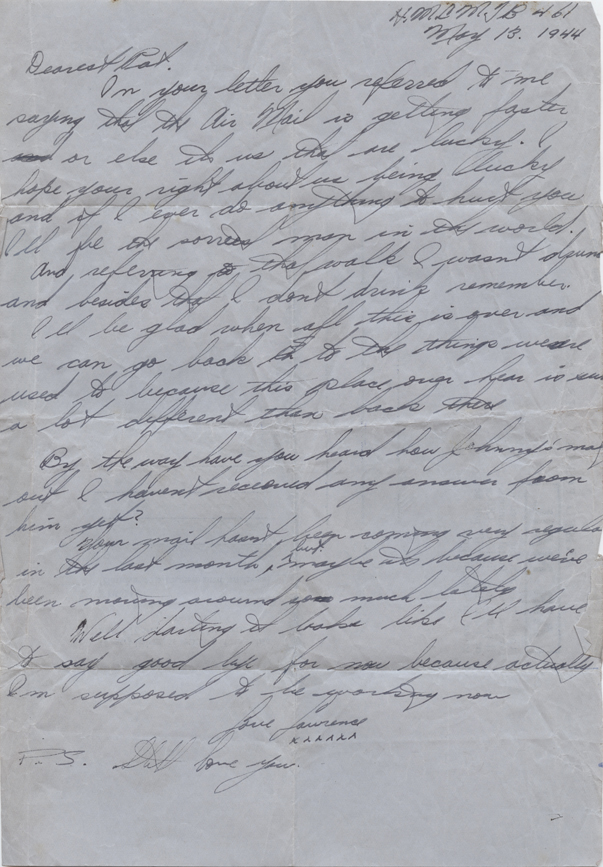 H.M.C.M.T.B 461
May 13. 1944
Dearest Pat.
In your letter you referred to me
saying that the Air Mail is getting faster
or else its us that are lucky. I
hope your right about us being lucky
and if I ever do anything to hurt you
I'll be the sorriest man in the world.
And referring to that walk I wasn't
and besides that I don't drink remember.
I'll be glad when all this is over and
we can go back to the things we are
used to because this place over hear is
a lot different than back there
By the way have you heard how Johnny's
out I haven't received any answer from
him yet?
Your mail hasn't been coming very regular
in the last month, but maybe its because we've
been moving around so much lately
Well darling it looks like I'll have
to say good bye for now because actually
I'm supposed to be working now
Love Lawrence
xxxxxx
P.S. Still love you.